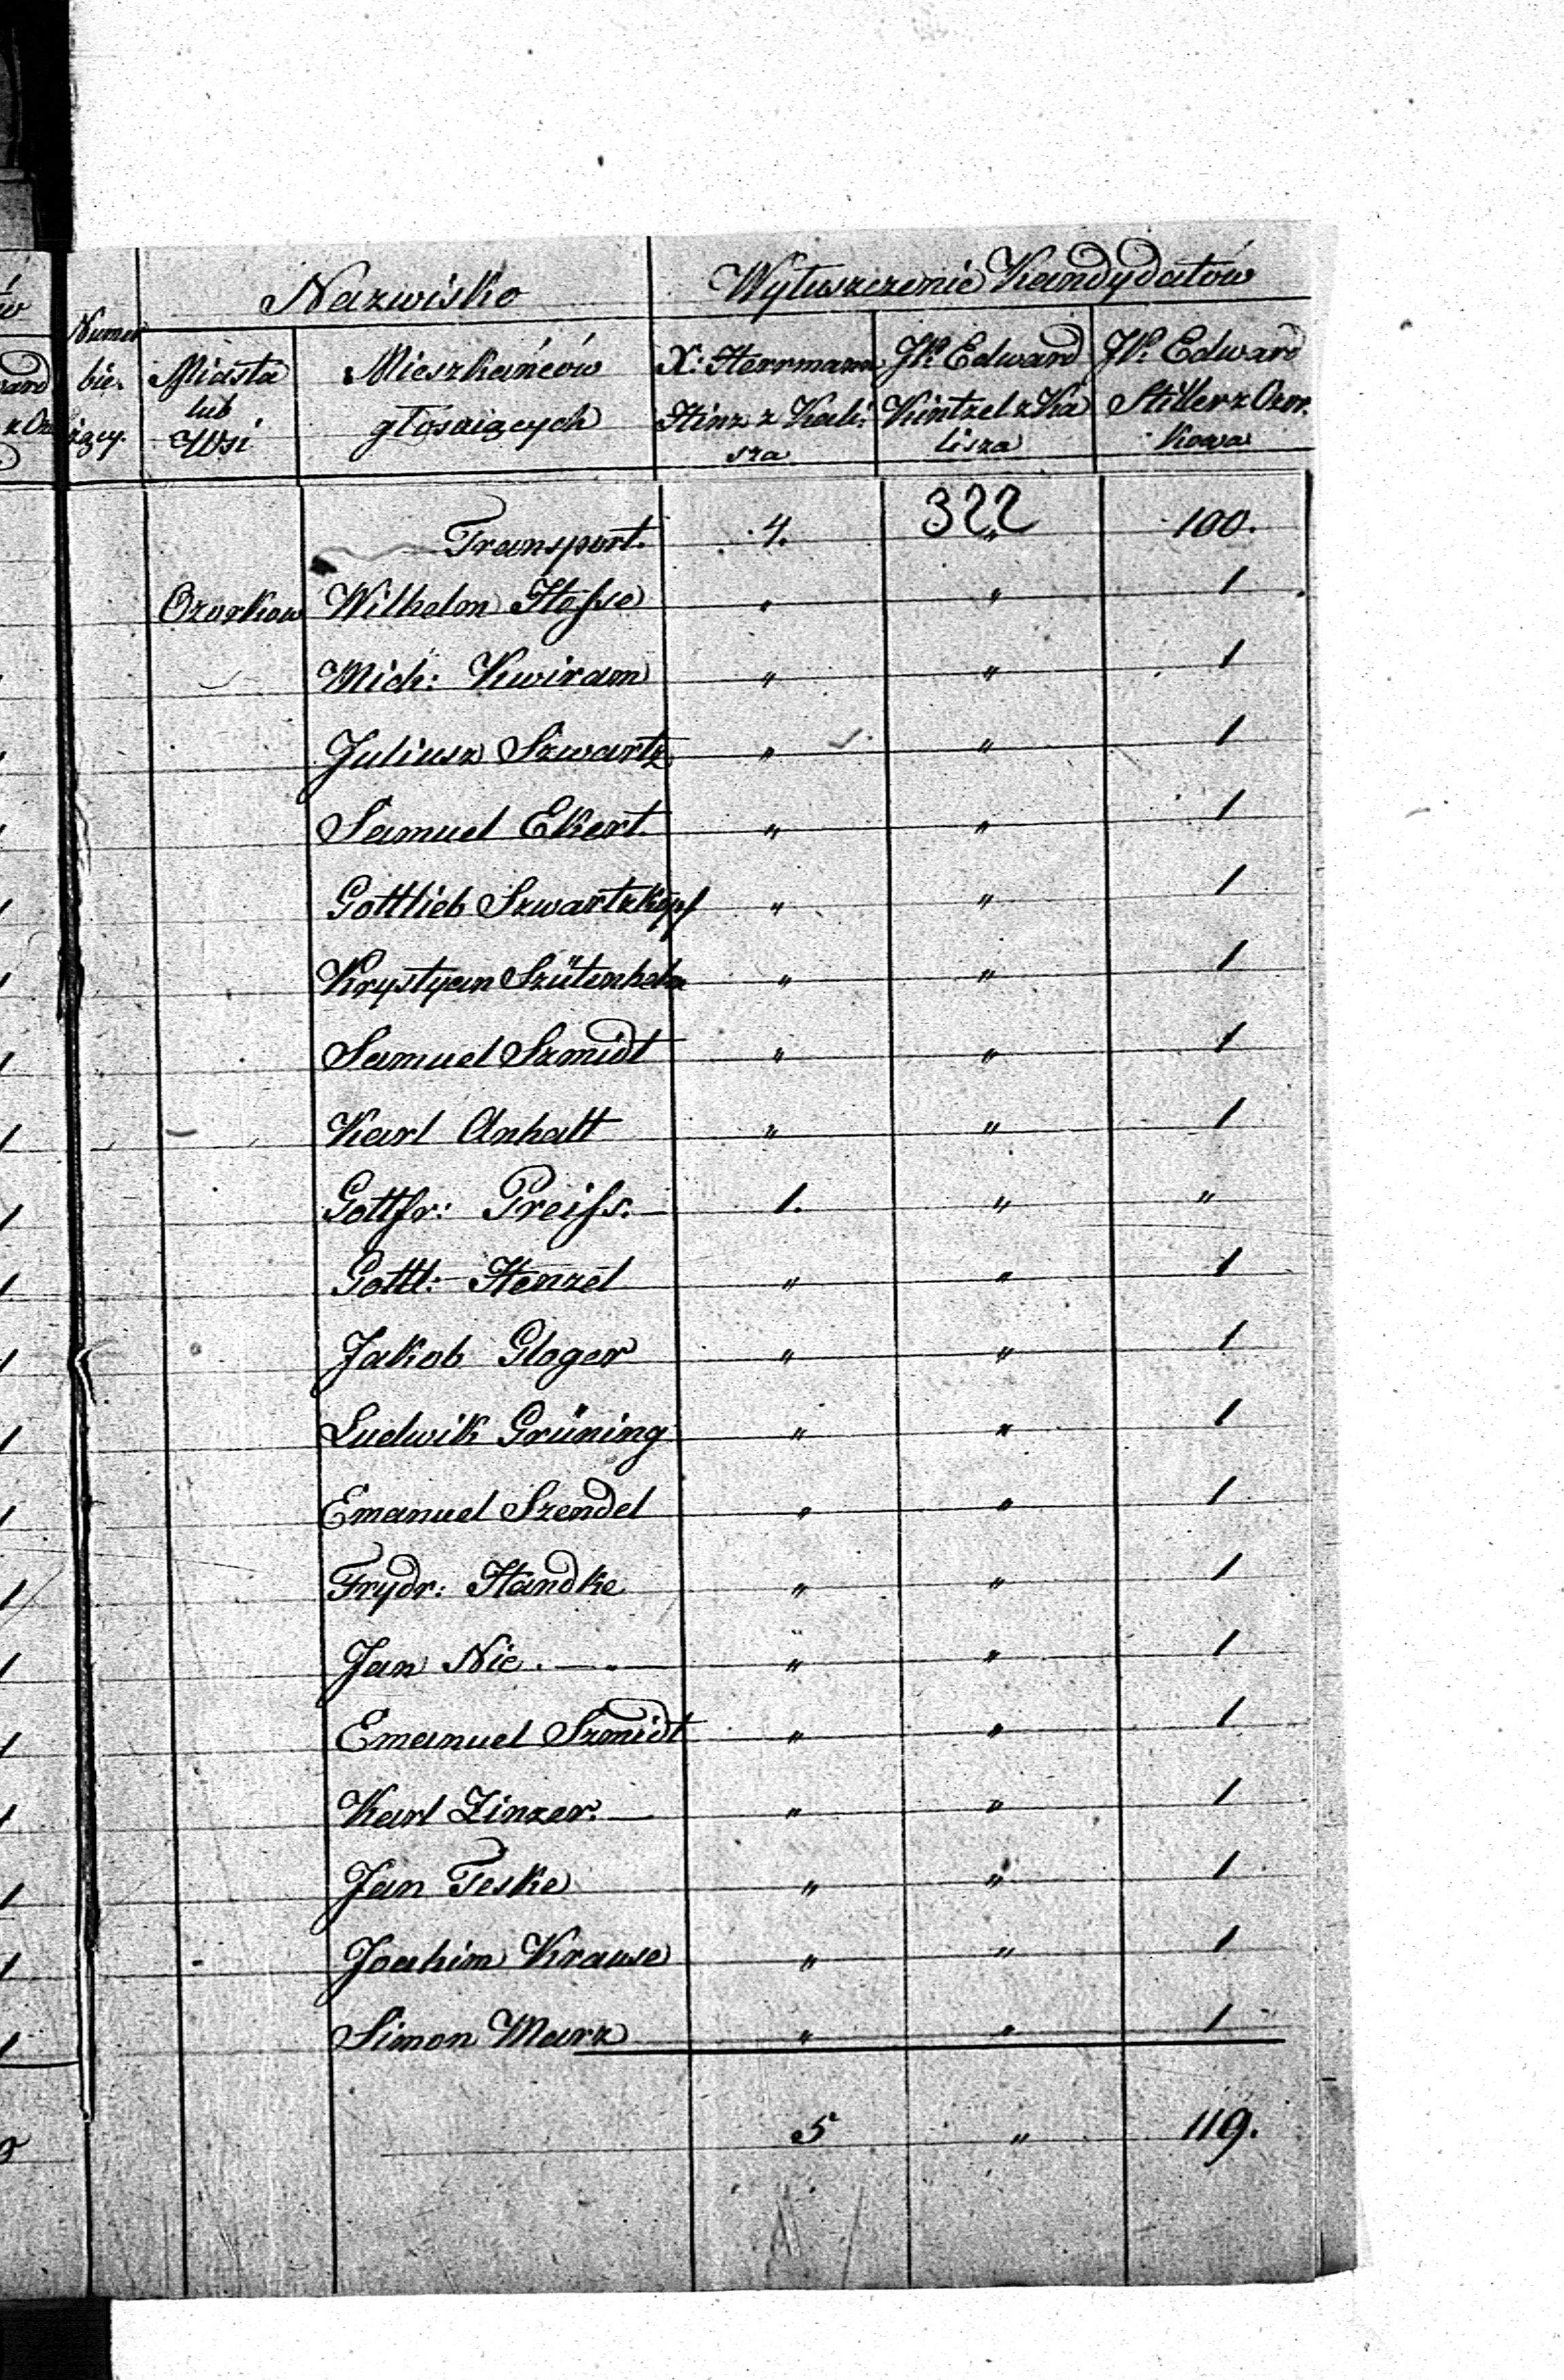 Nazwisko Wyłuszczenie Kandydatów
Numer bie- żący. Miasta lub Wsi Mieszkańców głosuiących X: Herrmann Hinz z Kali- sza JP. Edward Kintzel z Ka lisza JP. Edward Stiller z Ozor- kowa
Transport. 4. " 100.
322
Ozorkow Wilhelm Hesse " " 1
Mich: Kwiram " " 1
Juliusz Szwartz " " 1
Samuel Ekert " " 1
Gottlieb Szwartzkopf " " 1
Krystyan Szütenhelm " " 1
Samuel Szmidt " " 1
Karl Anhalt " " 1
Gottfr: Preiss. 1. " "
Gottl: Henzel " " 1
Jakob Gloger " " 1
Ludwik Grüning " " 1
Emanuel Szendel " " 1
Frydr: Handke " " 1
Jan Nie " " 1
Emanuel Szmidt " " 1
Karl Zinzer. " " 1
Jan Teske " " 1
Joahim Krause " " 1
Simon Marx " " 1
5 " 119.